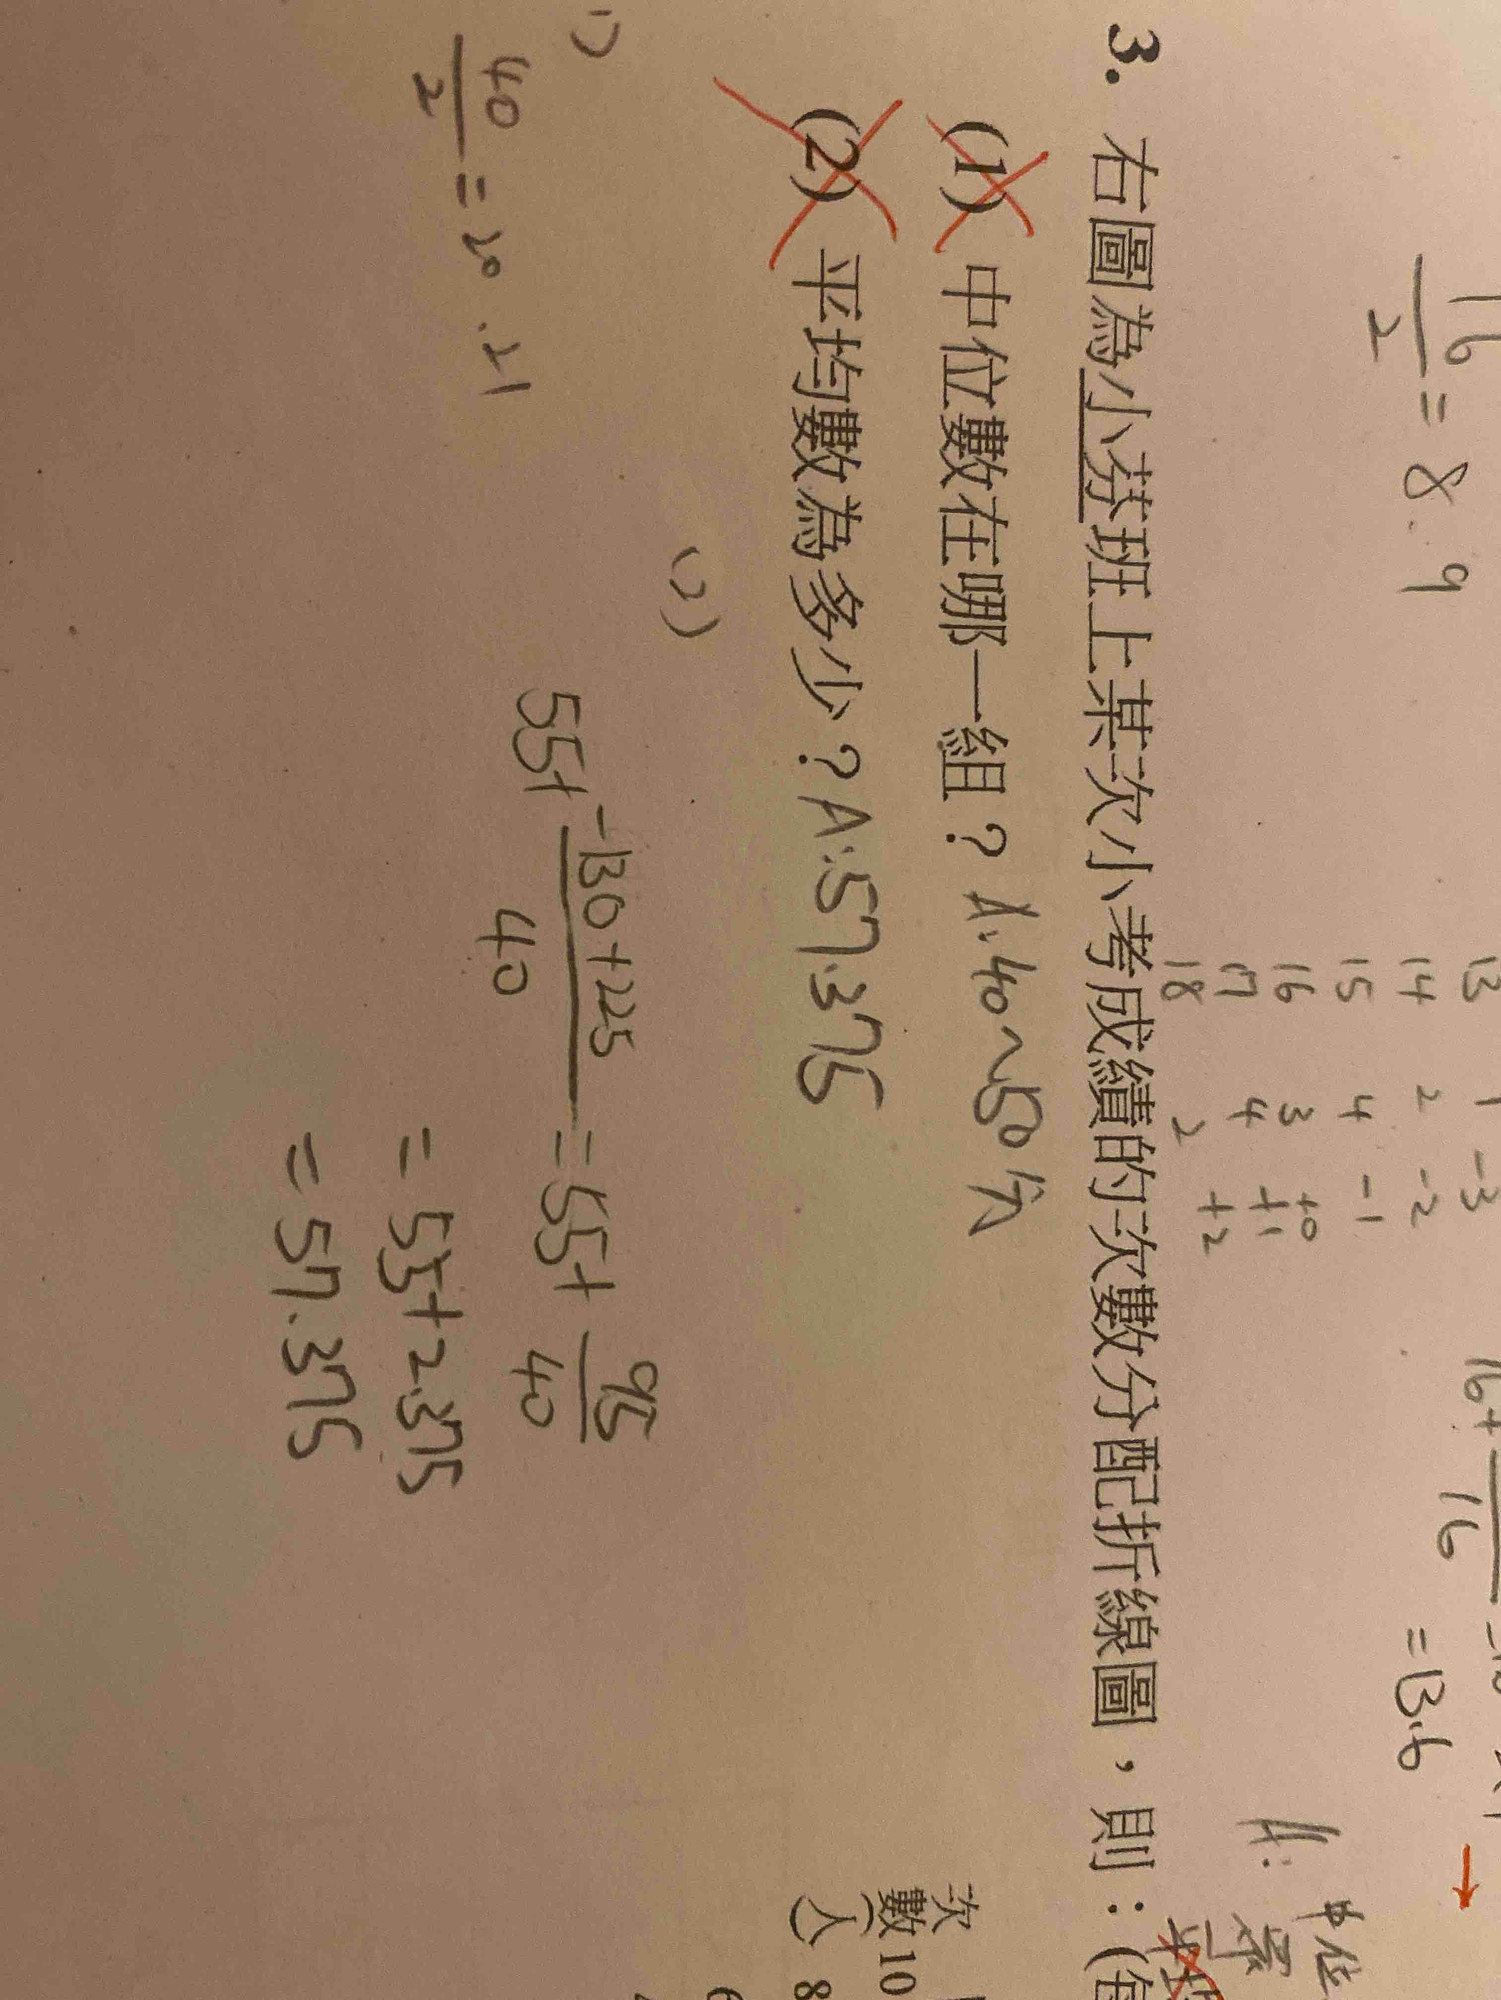 16/2 = 8.9
13 1 -3
14 2 -2
15 4 -1
16 3 +0
17 4 +1
18 2 +2
16+
16
=13.6
A: 中位
眾
3. 右圖為小芬班上某次小考成績的次數分配折線圖，則：(每
(1) 中位數在哪一組？A: 40~50分
(2) 平均數為多少？A: 57.375
次
數
(人
10
8
1)
40/2 = 20.21
(2)
55+ -130+225/40 = 55+ 95/40
= 55+2.375
= 57.375